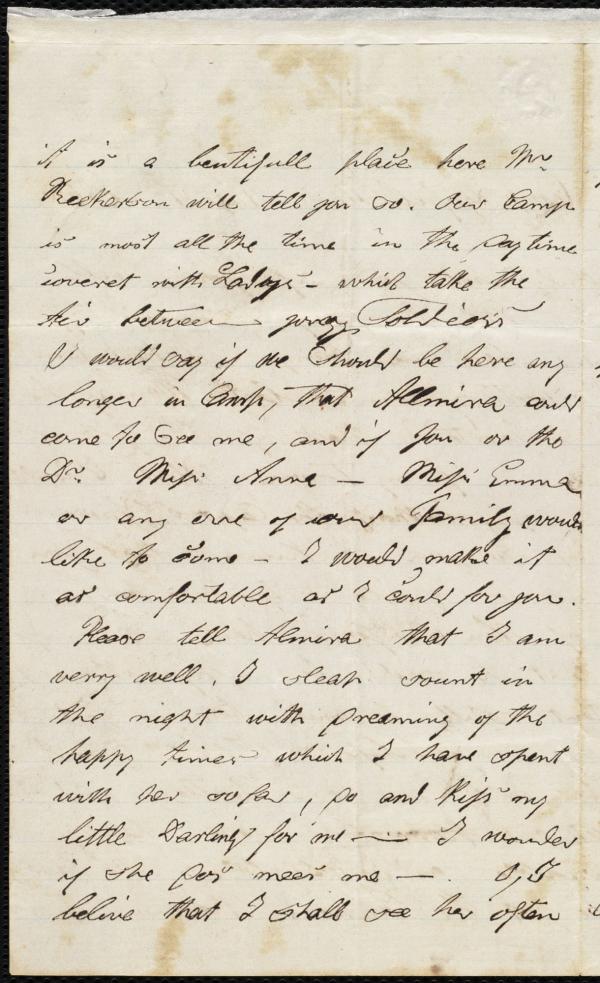 it is a beutifull place here Mr
will tell you so. Our Camp
is most all the time in the paytime
coveret with Ladys - which take the
Air between young Soldiers
I would say if we should be here any
longer in Camp, that Allmira could
come to See me, and if you or the
Dr. Miss Anna — Miss Emma
or any one of our Family would
like to come - I would make it
as comfortable as I could for you.
Please tell Almira that I am
verry well, I sleap sount in
the night with dreaming of the
happy times which I have spent
with her so far, do and Kiss my
little Darling for me — I wonder
if she dos mees me —. O, I
belive that I shall see her often